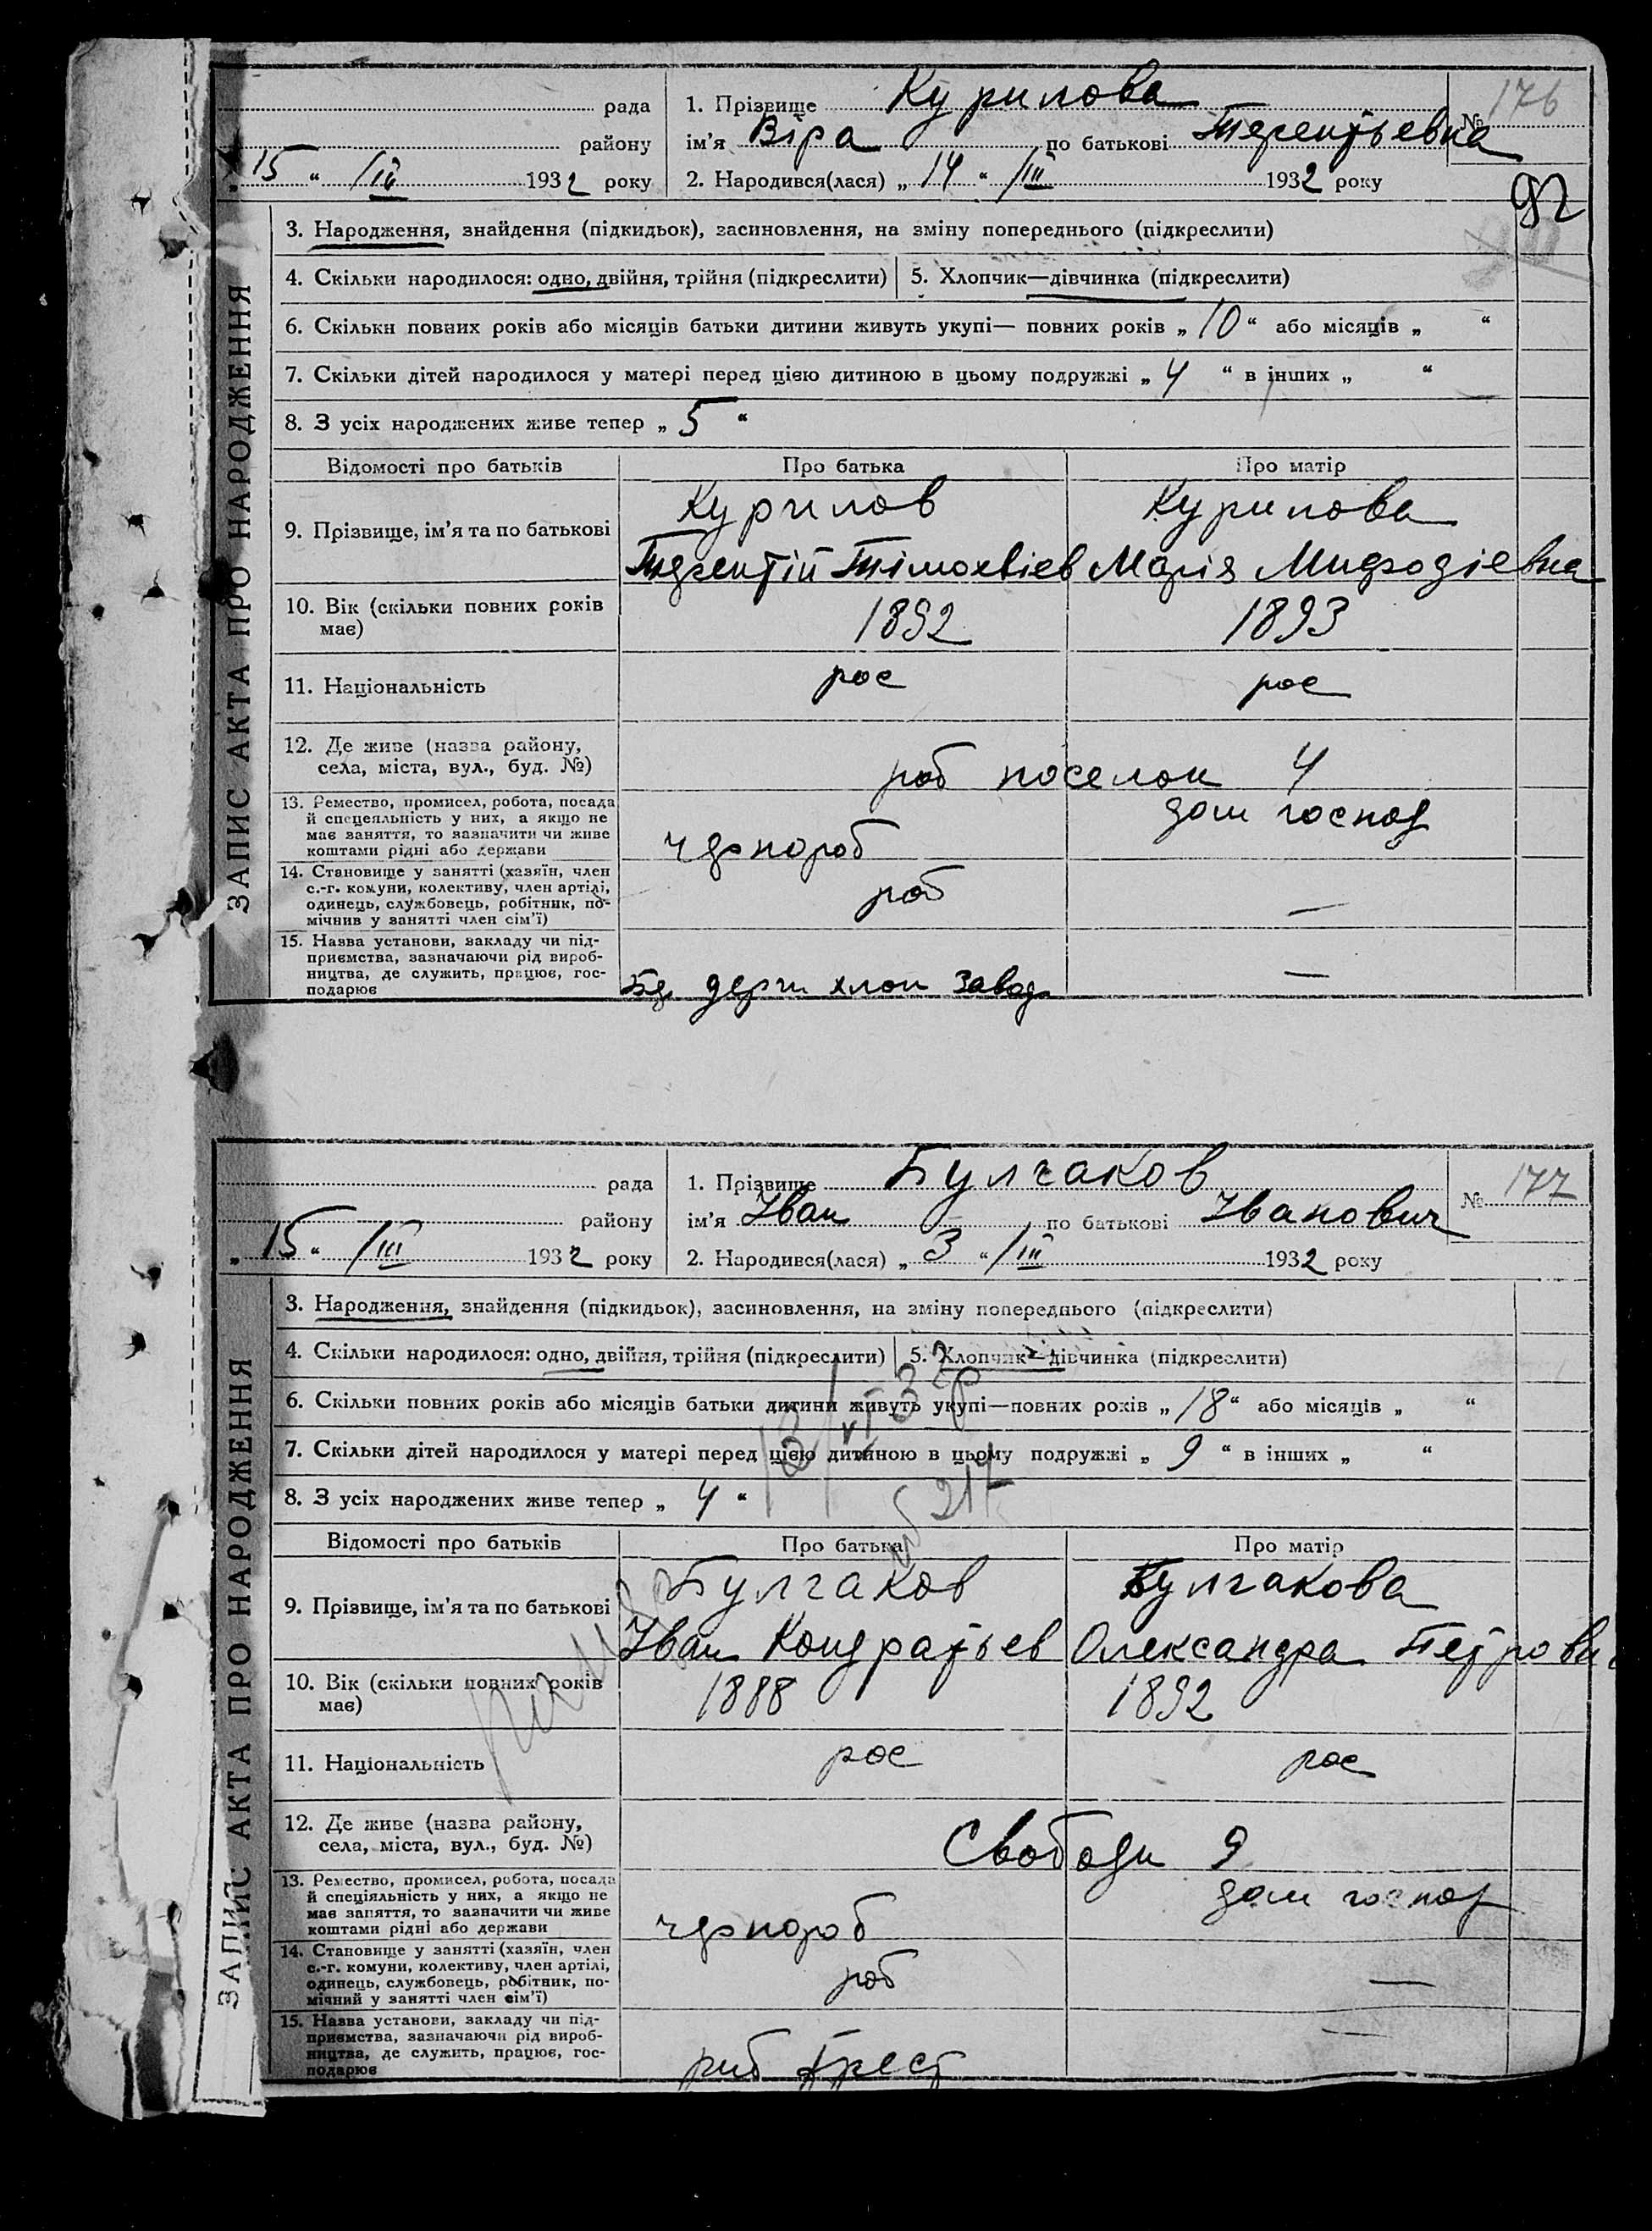 ЗАПИС АКТА ПРО НАРОДЖЕННЯ
рада
району
„ 15 “ /III 1932 року
1. Прізвище Курилова
ім’я Віра по батькові Терентьевна
2. Народився(лася) „ 14 “ /III 1932 року
№ 176
92
3. Народження, знайдення (підкидьок), засиновлення, на зміну попереднього (підкреслити)
4. Скільки народилося: одно, двійня, трійня (підкреслити) 5. Хлопчик—дівчинка (підкреслити)
6. Скільки повних років або місяців батьки дитини живуть укупі— повних років „ 10 “ або місяців „ “
7. Скільки дітей народилося у матері перед цією дитиною в цьому подружжі „ 4 “ в інших „ “
8. З усіх народжених живе тепер „ 5 “
Відомості про батьків Про батька Про матір
9. Прізвище, ім’я та по батькові
Курилов
Терентій Тімохвієв
Курилова
Марія Мифодіевна
10. Вік (скільки повних років
має)
1892 1893
11. Національність рос рос
12. Де живе (назва району,
села, міста, вул., буд. №)
роб поселок 4
13. Ремество, промисел, робота, посада
й спецеяльність у них, а якщо не
має заняття, то зазначити чи живе
коштами рідні або держави
чернороб
дом господ
14. Становище у занятті (хазяїн, член
с.-г. комуни, колективу, член артілі,
одинець, службовець, робітник, по-
мічнив у занятті член сім’ї)
роб —
15. Назва установи, закладу чи під-
приємства, зазначаючи рід вироб-
ництва, де служить, працює, гос-
подарює
держ хлоп завод —
ЗАПИС АКТА ПРО НАРОДЖЕННЯ
рада
району
„ 15 “ /III 1932 року
1. Прізвище Булгаков
ім’я Іван по батькові Іванович
2. Народився(лася) „ 3 “ /III 1932 року
№ 177
3. Народження, знайдення (підкидьок), засиновлення, на зміну попереднього (підкреслити)
4. Скільки народилося: одно, двійня, трійня (підкреслити) 5. Хлопчик—дівчинка (підкреслити)
6. Скільки повних років або місяців батьки дитини живуть укупі—повних років „ 18 “ або місяців „ “
7. Скільки дітей народилося у матері перед цією дитиною в цьому подружжі „ 9 “ в інших „ “
8. З усіх народжених живе тепер „ 4 “
13/VI 32 р
№ 217
Відомості про батьків Про батька Про матір
9. Прізвище, ім’я та по батькові
Булгаков
Іван Кондратьев
Булгакова
Олександра Петровн
10. Вік (скільки повних років
має)
1888 1892
11. Національність рос рос
12. Де живе (назва району,
села, міста, вул., буд. №)
Свободи 9
13. Ремество, промисел, робота, посада
й спеціяльність у них, а якщо не
має заняття, то зазначити чи живе
коштами рідні або держави
чернороб
дом господ
14. Становище у занятті (хазяїн, член
с.-г. комуни, колективу, член артілі,
одинець, службовець, робітник, по-
мічний у занятті член сім’ї)
роб —
15. Назва установи, закладу чи під-
приємства, зазначаючи рід вироб-
ництва, де служить, працює, гос-
подарює
риб трест —